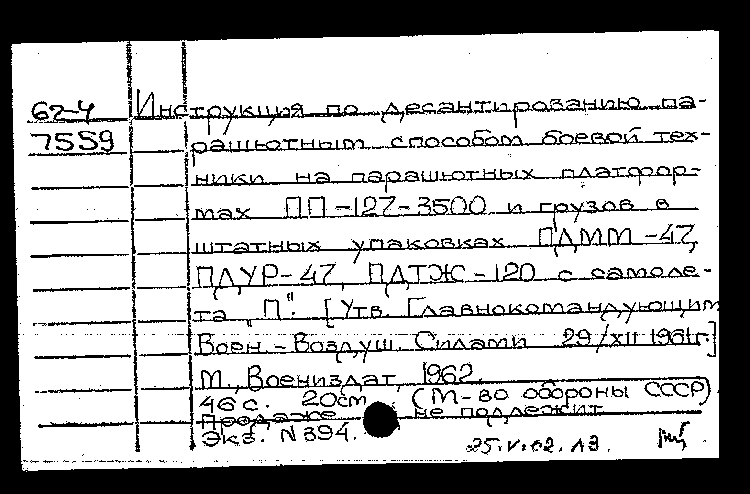 62-4 Инструкция по десантированию па-
7559 рашютным способом боевой тех-
ники на парашютных платфор-
мах ПП-127-3500 и грузов в
штатных упаковках ПДММ-47,
ПДУР-47, ПДТЖ-120 с самоле-
та "П". [Утв. Главнокомандующим
Воен.-Воздуш. Силами 29/XII 1961г.]
М., Воениздат, 1962.
46 с. 20см (М-во обороны СССР)
Продаже не подлежит
Экз. N394.
25.V.62. ЛЗ.